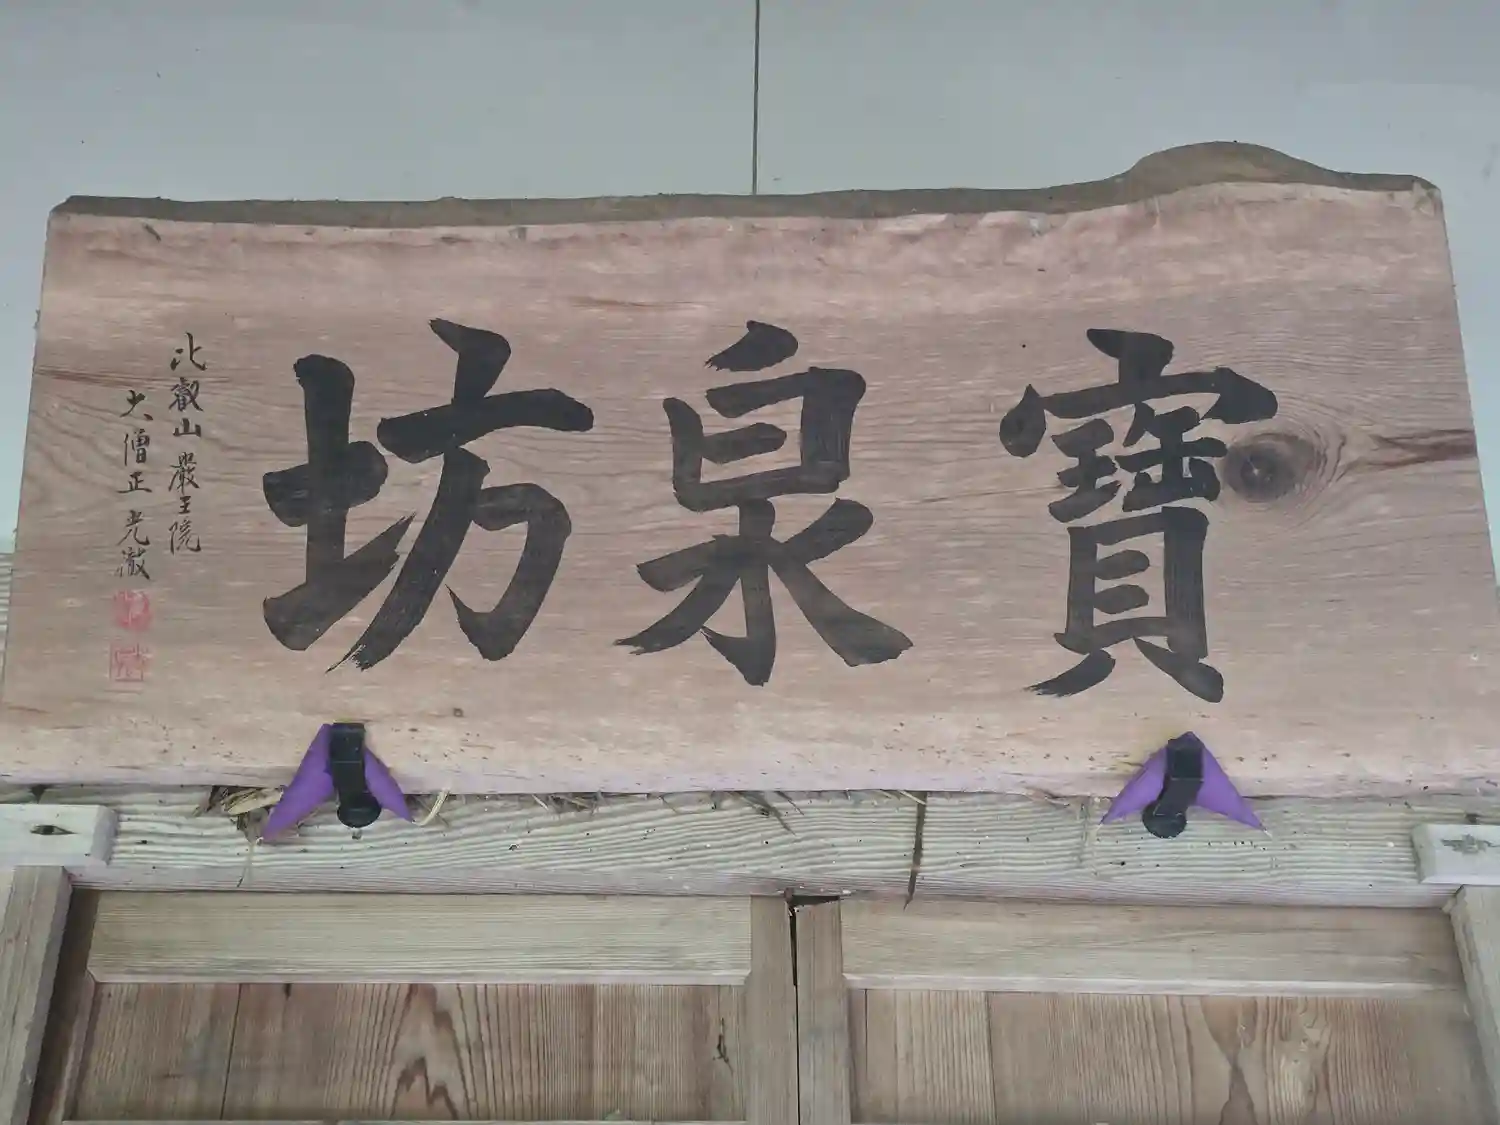 寶泉坊
比叡山 嚴王院
大僧正 光澈